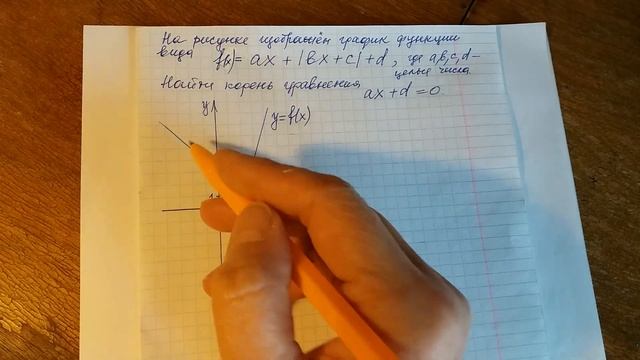 На рисунке изображён график функции
вида f(x) = ax + |bx + c| + d, где a, b, c, d –
целые числа
Найти корень уравнения ax + d = 0
y
y = f(x)
1